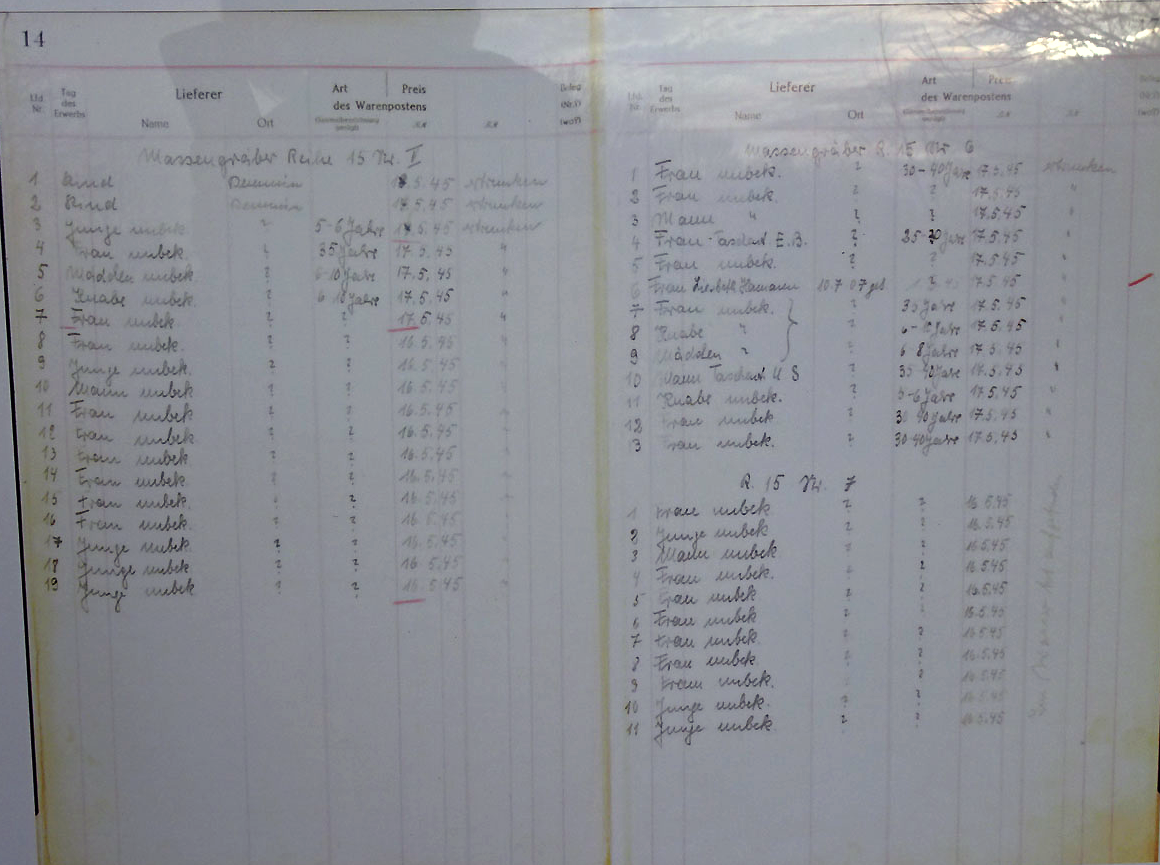 14
Lfd. Nr. Tag des Erwerbs Lieferer Name Ort Art des Warenpostens Preis RM RM Beleg (Nr.?)
Massengräber Reihe 15 Nr. I
1 Kind Demmin .5.45 ertrunken
2 Kind Demmin .5.45 ertrunken
3 Junge unbek. ? 5-6 Jahre .5.45 ertrunken
4 Frau unbek. ? 35 Jahre 17.5.45 "
5 Mädchen unbek. ? 6-10 Jahre 17.5.45 "
6 Knabe unbek. ? Jahre 17.5.45 "
7 Frau unbek. ? ? 17.5.45 "
8 Frau unbek. ? ? 16.5.45 "
9 Junge unbek. ? ? 16.5.45 "
10 Mann unbek ? ? 16.5.45
11 Frau unbek ? ? 16.5.45 "
12 Frau unbek ? ? 16.5.45 "
13 Frau unbek ? ? 16.5.45 "
14 Frau unbek. ? ? 16.5.45 "
15 Frau unbek. ? ? 16.5.45 "
16 Frau unbek. ? ? 16.5.45
17 Junge unbek ? ? 16.5.45 "
18 Junge unbek ? ? 16.5.45 "
19 Junge unbek ? ? 16.5.45 "
Lfd. Nr. Tag des Erwerbs Lieferer Name Ort Art des Warenpostens Preis RM RM Beleg (Nr.?)
Massengräber R. 15 Nr 6
1 Frau unbek. ? 30-40 Jahre 17.5.45 ertrunken
2 Frau unbek. ? ? 17.5.45 "
3 Mann " ? ? 17.5.45 "
4 Frau Taschent E.B. ? Jahre 17.5.45 "
5 Frau unbek. ? ? 17.5.45 "
6 Frau Liesbeth Hamann 10.7.07 geb ? 17.5.45 "
7 Frau unbek. ? 35 Jahre 17.5.45 "
8 Knabe " ? Jahre 17.5.45 "
9 Mädchen " ? 6 8 Jahre 17.5.45 "
10 Mann Taschent U S ? 35 40 Jahre 17.5.45 "
11 Knabe unbek. ? 5-6 Jahre 17.5.45 "
12 Frau unbek ? 30 40 Jahre 17.5.45 "
3 Frau unbek. ? 30 40 Jahre 17.5.45 "
R. 15 Nr. 7
1 Frau unbek. ? ? 16.5.45
2 Junge unbek ? ? 16.5.45
3 Mann unbek ? ? 16.5.45
4 Frau unbek. ? ? 16.5.45
5 Frau unbek ? ? 16.5.45
6 Frau unbek ? ? 16.5.45
7 Frau unbek. ? ? 16.5.45
8 Frau unbek. ? ? 16.5.45
9 Frau unbek. ? ? 16.5.45
10 Junge unbek. ? ? 16.5.45
11 Junge unbek. ? ? 16.5.45